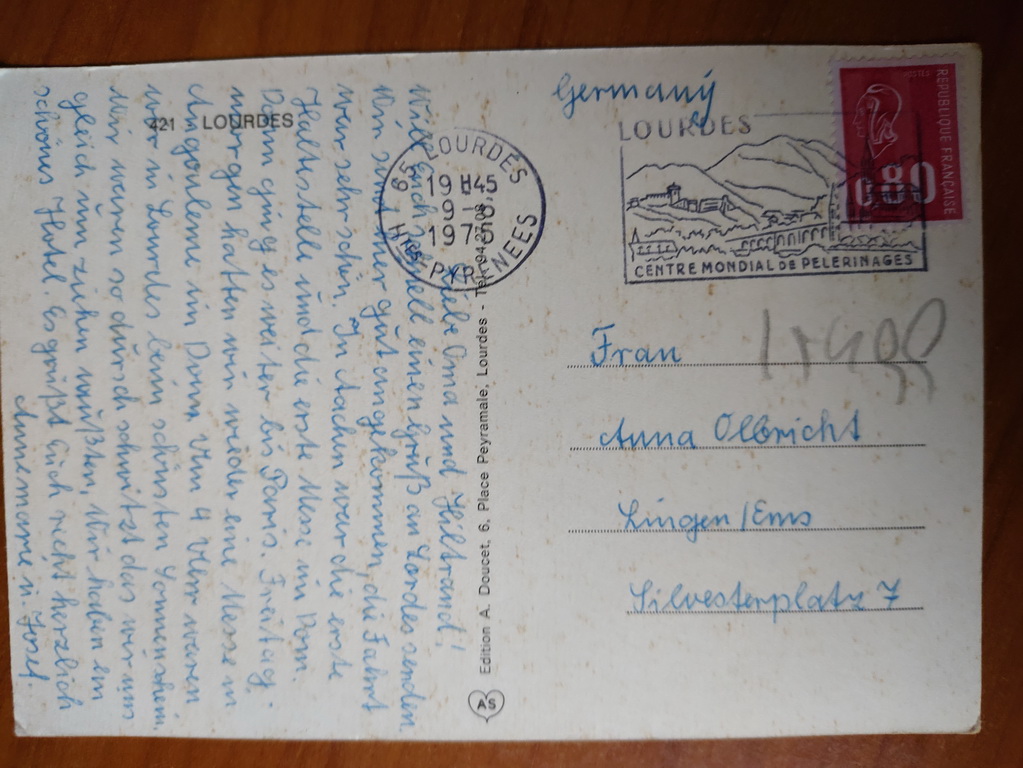 421 LOURDES
Liebe Oma und Hiltraud,
Will Euch schnell einen Gruß an Lordes senden
Wir sind hier gut angekommen, die Fahrt
war sehr schön. In Aachen war die erste
Haltstelle und die erste Messe im Dom.
Dann ging es weiter bis Paris. Freitag
morgen hatten wir wieder eine Messe in
Angouleme im Dom. Um 4 Uhr waren
wir in Lourdes beim schönsten Sonnenschein.
Wir waren so durschschwitzt das wir uns
gleich um-ziehen mußten, Wir haben ein
schönes Hotel. Es grüßt Euch recht herzlich
Annemarie u. Josef.
Edition A. Doucet, 6, Place Peyramale, Lourdes - Tél. 94.27.08
AS
65 LOURDES
19 H45
9-8
1975
Htes PYRENEES
Germany
LOURDES
CENTRE MONDIAL DE PELERINAGES
POSTES
REPUBLIQUE FRANÇAISE
0.80
Frau
Anna Olbricht
Lingen/Ems
Silvesterplatz 7